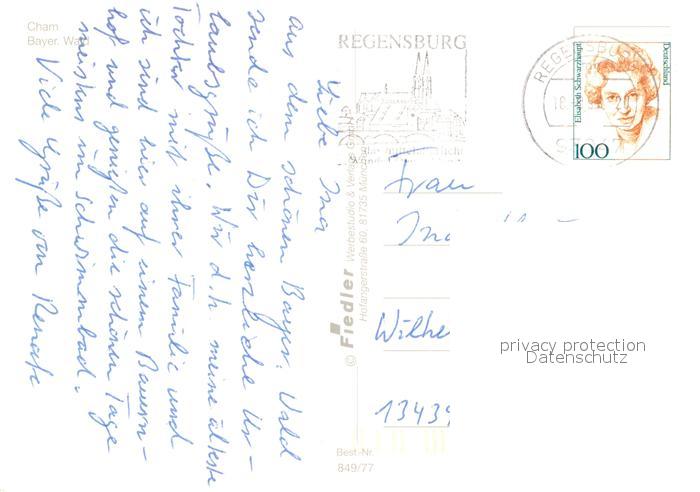 Cham
Bayer. Wald
Liebe Ina
aus dem schönen Bayer. Wald
sende ich Dir herzliche Ur-
laubsgrüße. Wir d.h. meine älteste
Tochter mit ihrer Familie und
ich sind hier auf einem Bauern-
hof und genießen die schönen Tage
meistens im Schwimmbad.
Viele Grüße von Renate
© Fiedler Werbestudio & Verlag
Hofangerstraße 60, 81735 München
Best-Nr.
849/77
REGENSBURG
REGENSBURG
Deutschland
Elisabeth Schwarzhaupt
100
Frau
In
Wilhe
13439
privacy protection
Datenschutz